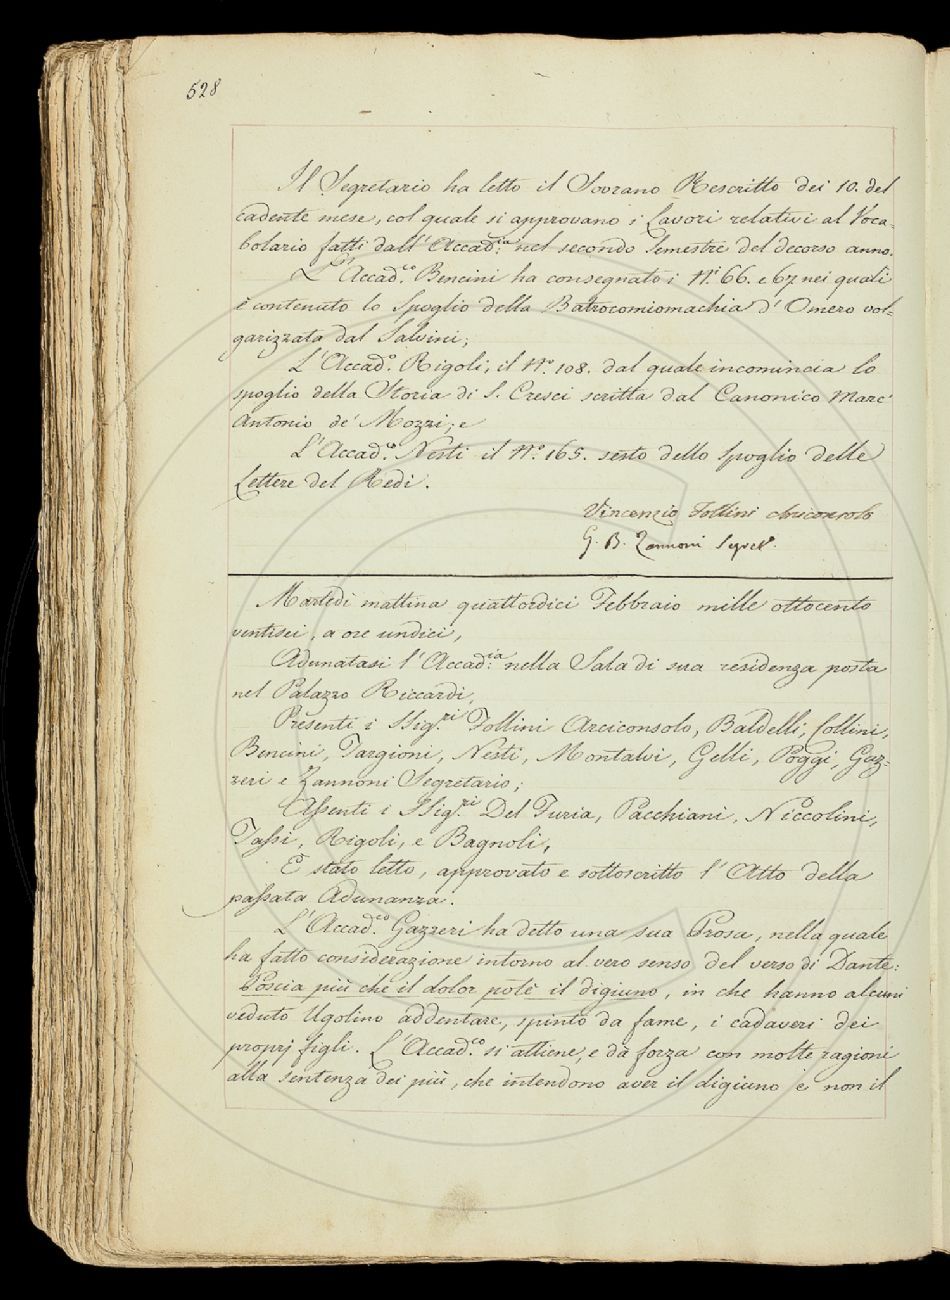 528
Il Segretario ha letto il Sovrano Rescritto dei 10. del
cadente mese, col quale si approvano i Lavori relativi al Voca-
bolario fatti dall'Accad:ia nel secondo Semestre del decorso anno.
L'Accad.co Bencini ha consegnato i N.i 66. e 67 nei quali
è contenuto lo Spoglio della Batrocomiomachia d'Omero vol-
garizzata dal Salvini;
L'Accad.o Rigoli, il N.o 108. dal quale incomincia lo
spoglio della Storia di S. Cresci scritta dal Canonico Marc'
Antonio de' Mozzi; e
L'Accad.co Nesti il N.o 165. sesto dello Spoglio delle
Lettere del Redi.
Vincenzio Follini Arciconsolo
G. B. Zannoni Segret.
Martedì mattina quattordici Febbraio mille ottocento
ventisei, a ore undici,
Adunatasi l'Accad:ia nella Sala di sua residenza posta
nel Palazzo Riccardi,
Presenti i SSig.ri Follini Arciconsolo, Baldelli, Collini,
Bencini, Targioni, Nesti, Montalvi, Gelli, Poggi, Gaz-
zeri e Zannoni Segretario;
Assenti i SSig.ri Del Furia, Pacchiani, Niccolini,
Tassi, Rigoli, e Bagnoli,
È stato letto, approvato e sottoscritto l'Atto della
passata Adunanza.
L'Accad.co Gazzeri ha detto una sua Prosa, nella quale
ha fatto considerazione intorno al vero senso del verso di Dante:
Poscia più che il dolor potè il digiuno, in che hanno alcuni
veduto Ugolino addentare, spinto da fame, i cadaveri dei
proprj figli. L'Accad.co si attiene, e dà forza con molte ragioni
alla sentenza dei più, che intendono aver il digiuno e non il